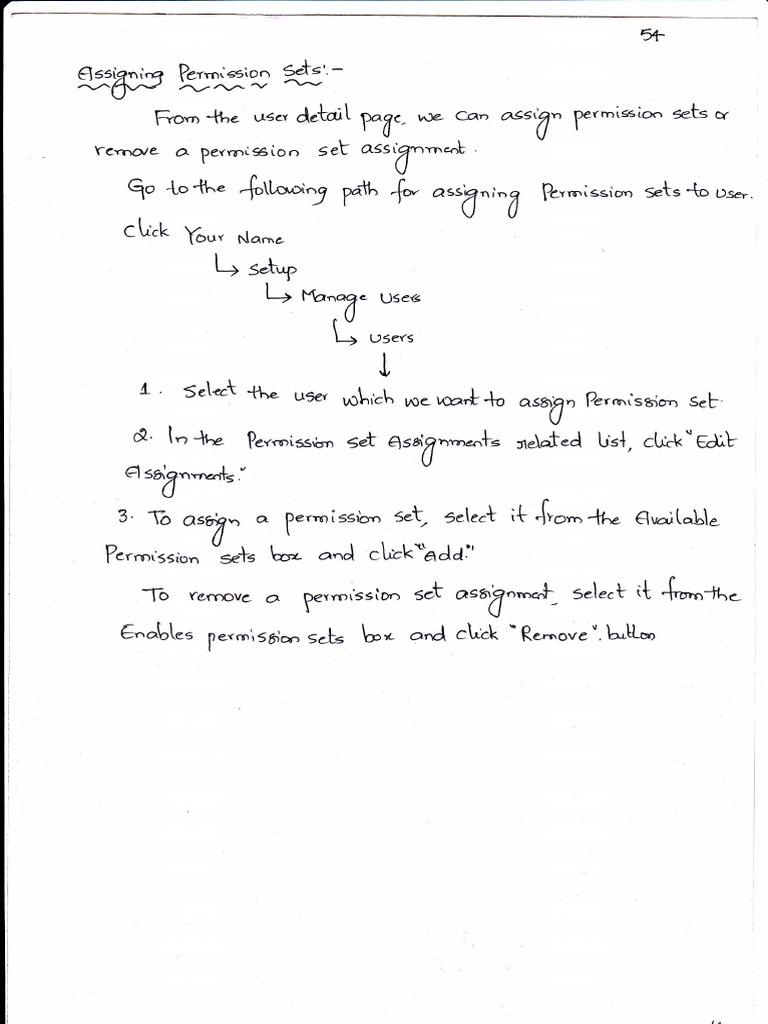 54
Assigning Permission Sets:-
From the user detail page, we can assign permission sets or
remove a permission set assignment.
Go to the following path for assigning Permission sets to user.
Click Your Name
↳ Setup
↳ Manage Users
↳ Users
↓
1. Select the user which we want to assign Permission set.
2. In the Permission set Assignments related list, click "Edit
Assignments."
3. To assign a permission set, select it from the Available
Permission sets box and click "Add."
To remove a permission set assignment, select it from the
Enables permission sets box and click "Remove". button